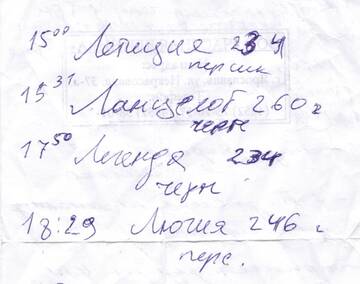 15⁰⁰ Летиция 234
персик
15³¹ Ланцелот 260 г
черн
17⁵⁰ Легенда 234
черн
18:29 Люгия 246 г
перс.